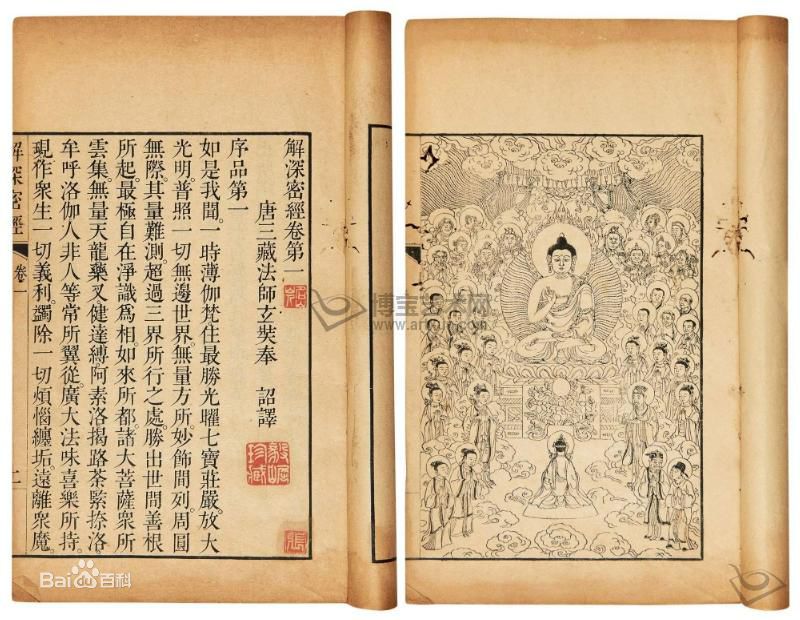 解深密經卷第一
唐三藏法師玄奘奉　詔譯
序品第一
如是我聞。一時薄伽梵住最勝光曜七寶莊嚴。放大
光明。普照一切無邊世界。無量方所。妙飾間列。周圓
無際。其量難測。超過三界所行之處。勝出世間善根
所起。最極自在淨識爲相。如來所都。諸大菩薩衆所
雲集。無量天龍藥叉健達縛阿素洛揭路荼緊捺洛
牟呼洛伽人非人等常所翼從。廣大法味喜樂所持。
現作衆生一切義利。蠲除一切煩惱纏垢。遠離衆魔。
解深密經 卷一
博宝艺术网
Bai百科